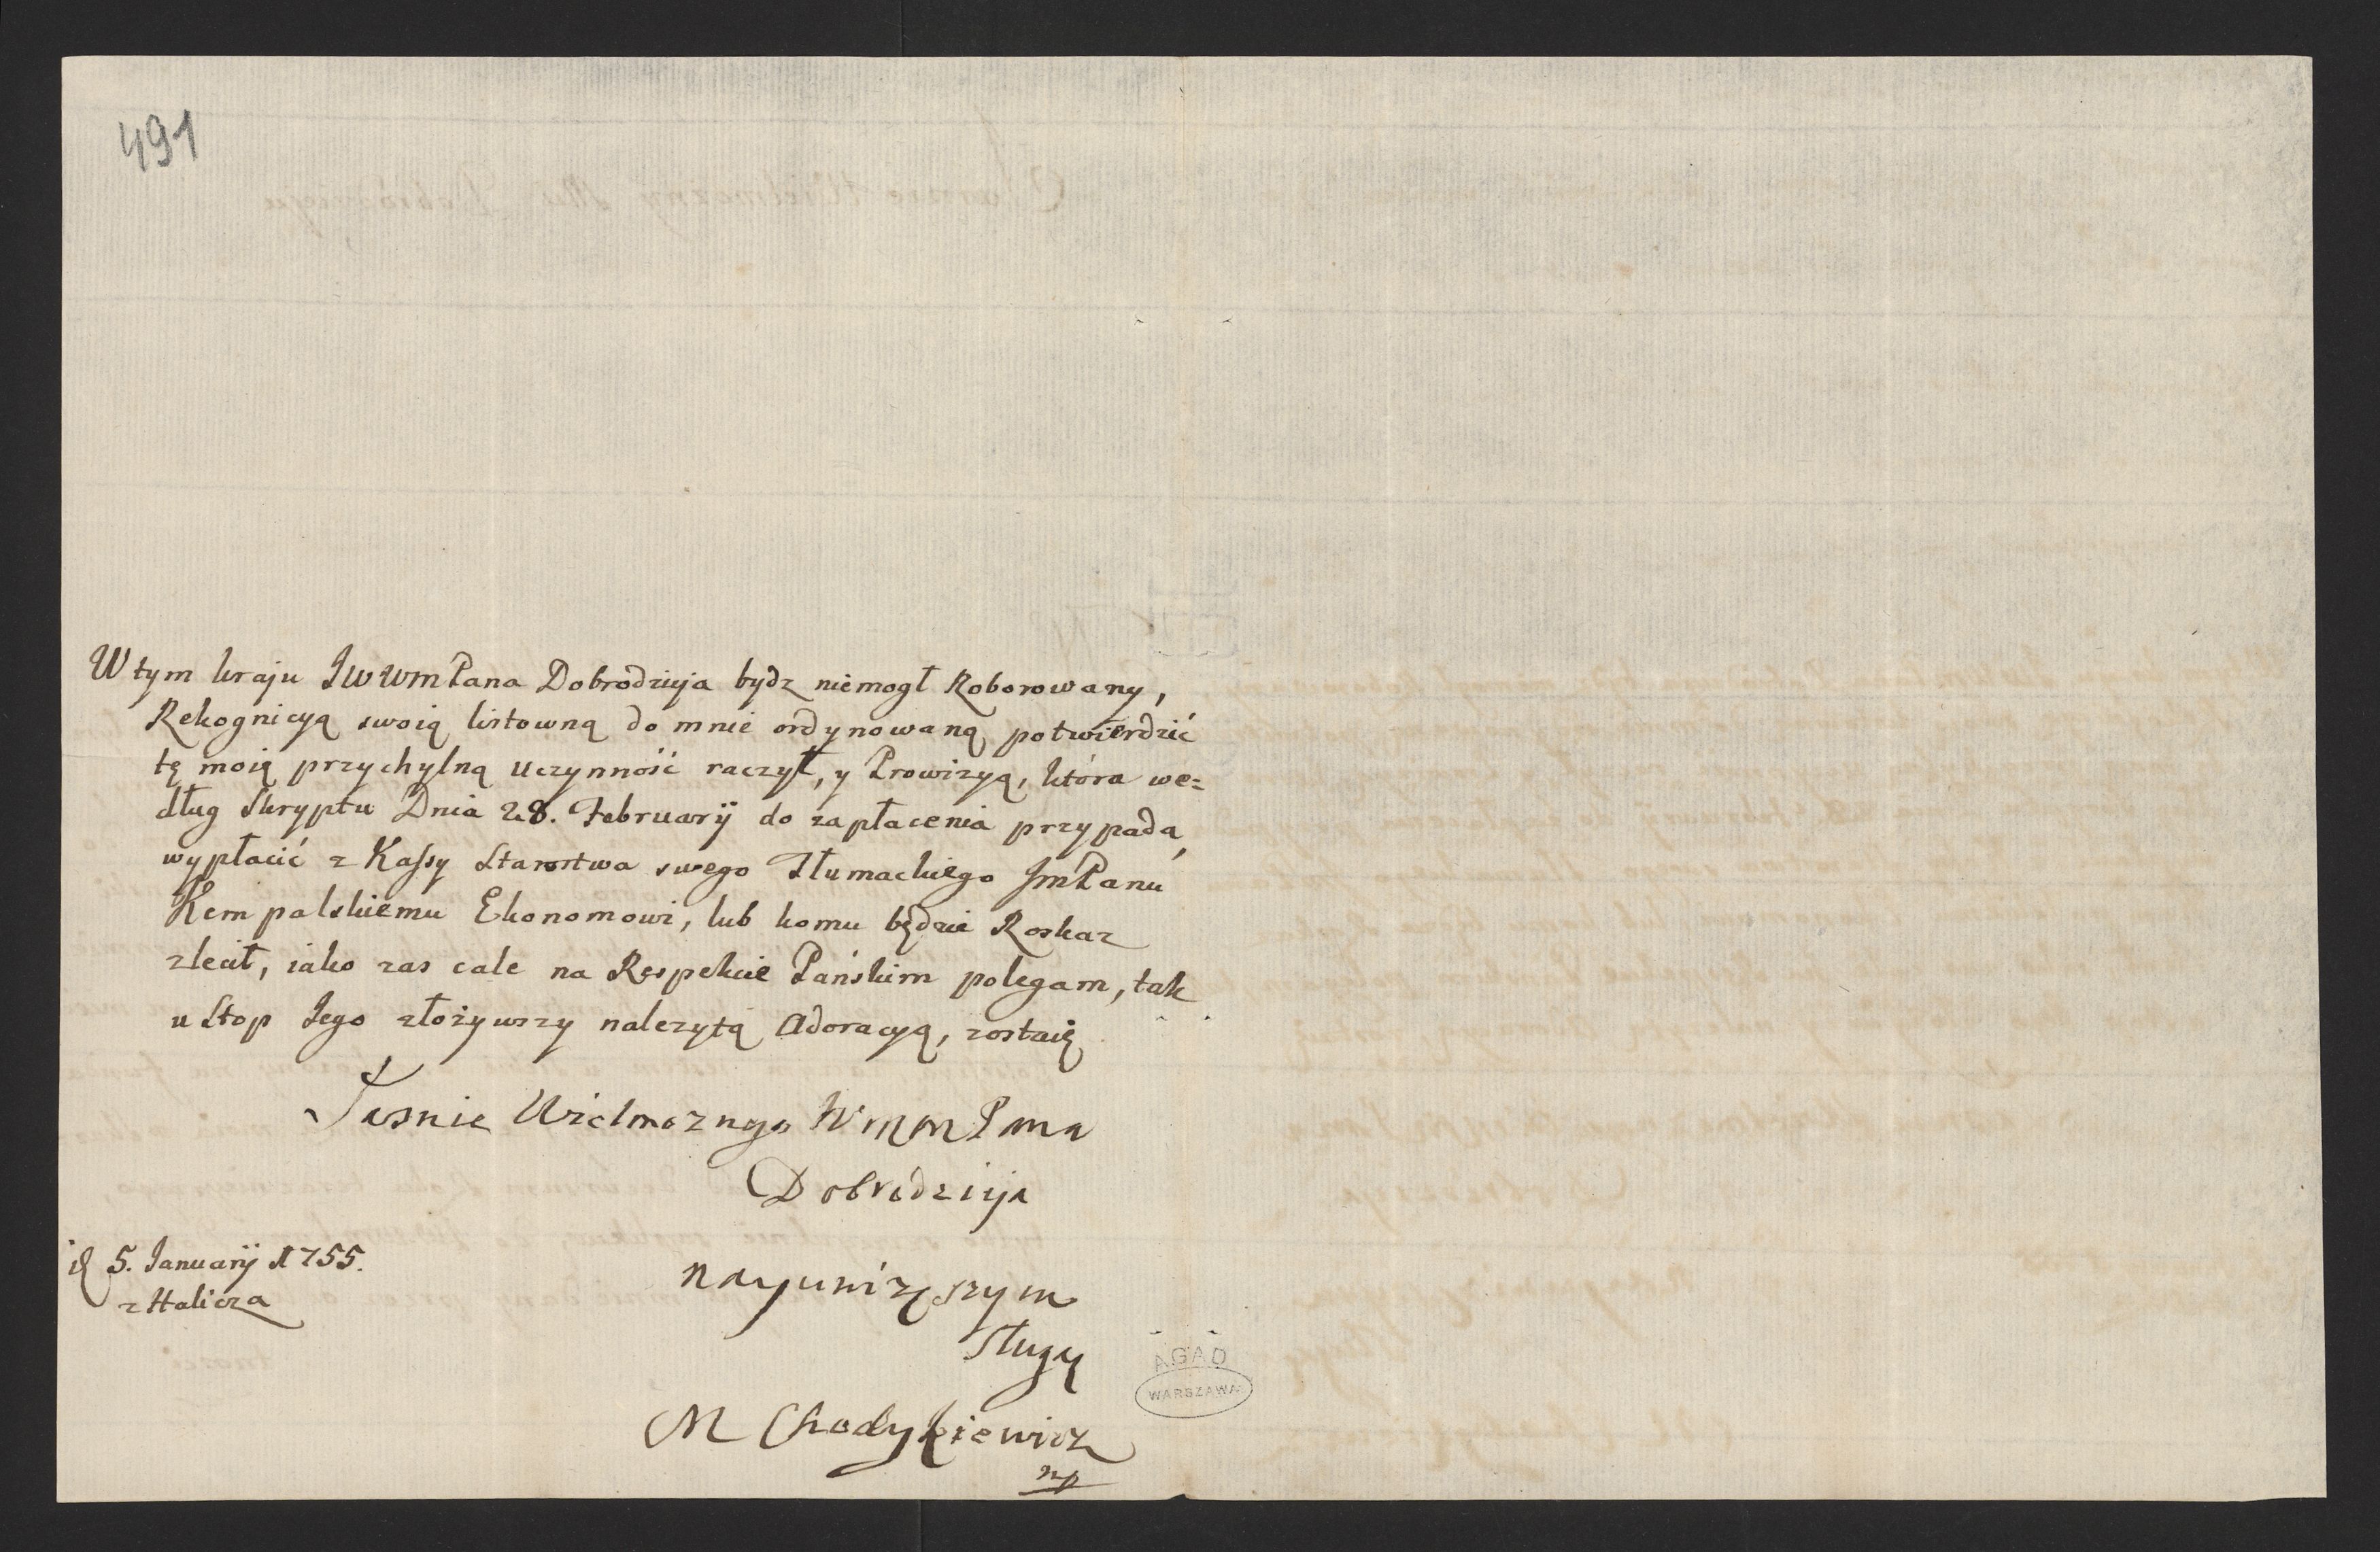 491
W tym kraju JWWmPana Dobrodzieja bydz niemogł Roborowany,
Rekognicyą swoią listowną do mnie ordynowaną potwierdzić
tę moią przychylną uczynność raczył, y Prowizyą, która we=
dług Skryptu Dnia 28. Februarij do zapłacenia przypada,
wypłacić z Kassy Starostwa swego Tłumackiego JmPanu
Kempalskiemu Ekonomowi, lub komu będzie Roskaz
zlecił, iako zas cale na Respekcie Pańskim polegam, tak
u Stop Jego złożywszy nalezytą Adoracyą, zostaię
Jasnie Wielmoznego WMM Pana
Dobrodzieja
nayunizszym
Sługą
5. Januarij 1755.
z Halicza
M Chodykiewicz
mp
AGAD
WARSZAWA